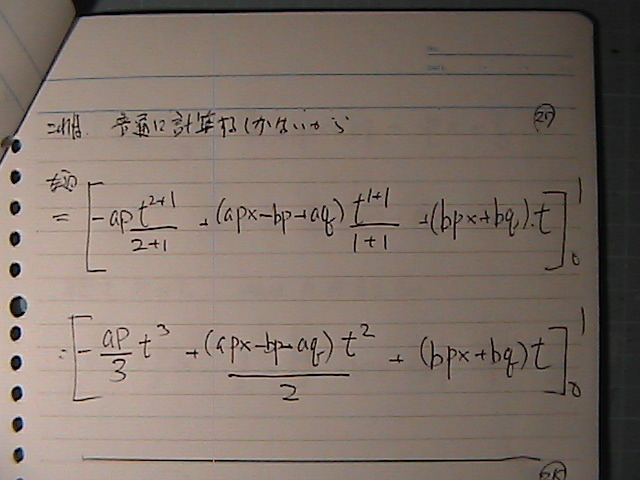 これは、普通に計算するしかないから ㉗
与式
= [-ap t^{2+1}/(2+1) + (apx-bp+aq) t^{1+1}/(1+1) + (bpx+bq)·t]_0^1
= [-ap/3 t^3 + (apx-bp+aq) t^2/2 + (bpx+bq) t]_0^1